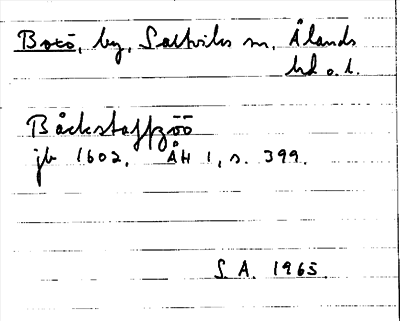 Botö, by, Saltviks sn, Ålands
hd o. l.
Båckstaffzöö
jb 1602. ÅH 1, s. 399.
S. A. 1965